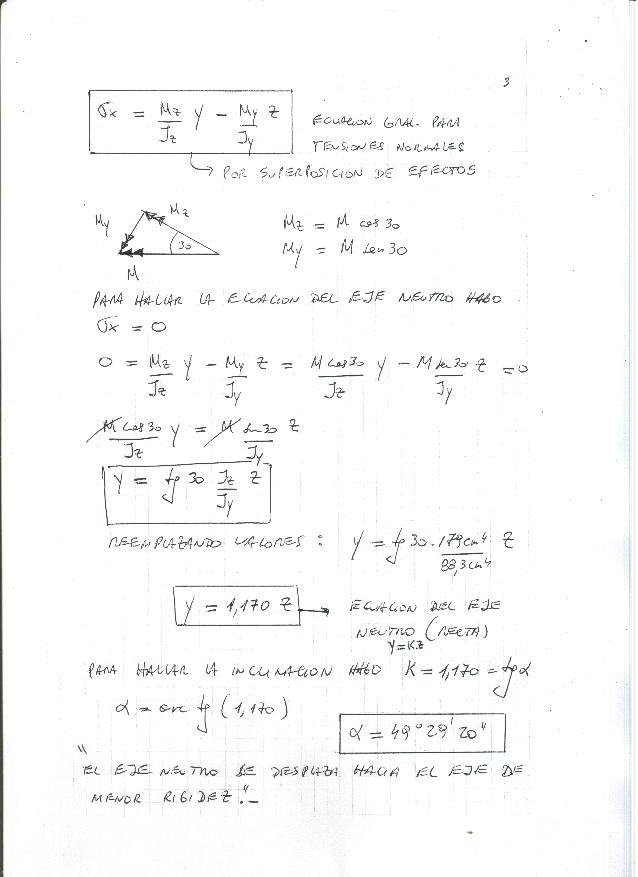 3
σx = Mz/Jz y − My/Jy z
ECUACION GRAL. PARA
TENSIONES NORMALES
POR SUPERPOSICION DE EFECTOS
My Mz 30 M
Mz = M cos 30
My = M sen 30
PARA HALLAR LA ECUACION DEL EJE NEUTRO HAGO
σx = 0
0 = Mz/Jz y − My/Jy z = M cos 30/Jz y − M sen 30/Jy z = 0
M cos 30/Jz y = M sen 30/Jy z
y = tg 30 Jz/Jy z
REEMPLAZANDO VALORES : y = tg 30 . 179 cm⁴/88,3 cm⁴ z
y = 1,170 z
ECUACION DEL EJE
NEUTRO (RECTA)
y=K.z
PARA HALLAR LA INCLINACION HAGO K = 1,170 = tg α
α = arc tg (1,170)
α = 49° 29' 20"
"
EL EJE NEUTRO SE DESPLAZA HACIA EL EJE DE
MENOR RIGIDEZ".-